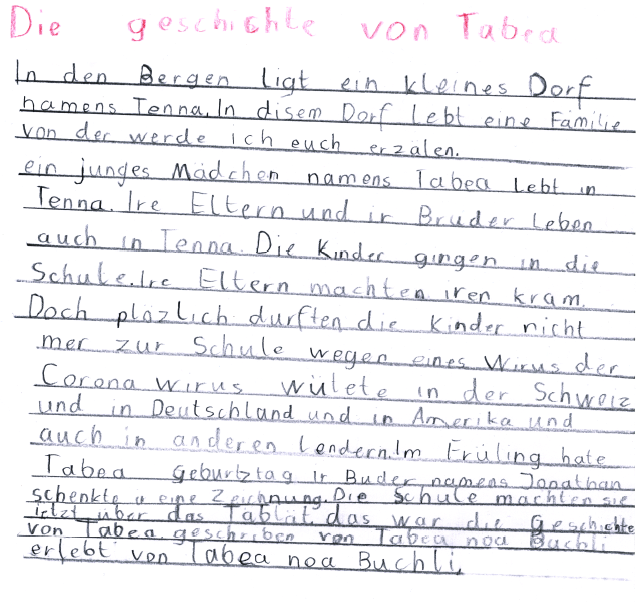 Die geschichte von Tabea
In den Bergen ligt ein kleines Dorf
namens Tenna. In disem Dorf lebt eine Familie
von der werde ich euch erzalen.
ein junges Mädchen namens Tabea lebt in
Tenna. Ire Eltern und ir Bruder leben
auch in Tenna. Die Kinder gingen in die
Schule. Ire Eltern machten iren kram.
Doch plözlich durften die Kinder nicht
mer zur Schule wegen eines Wirus der
Corona wirus wütete in der Schweiz
und in Deutschland und in Amerika und
auch in anderen lendern. Im Früling hate
Tabea geburtztag ir Buder namens Jonathan
schenkte a eine Zeichnung. Die Schule machten sie
jetzt über das Tablät das war die Geschichte
von Tabea geschriben von Tabea noa Buchli
erlebt von Tabea noa Buchli.